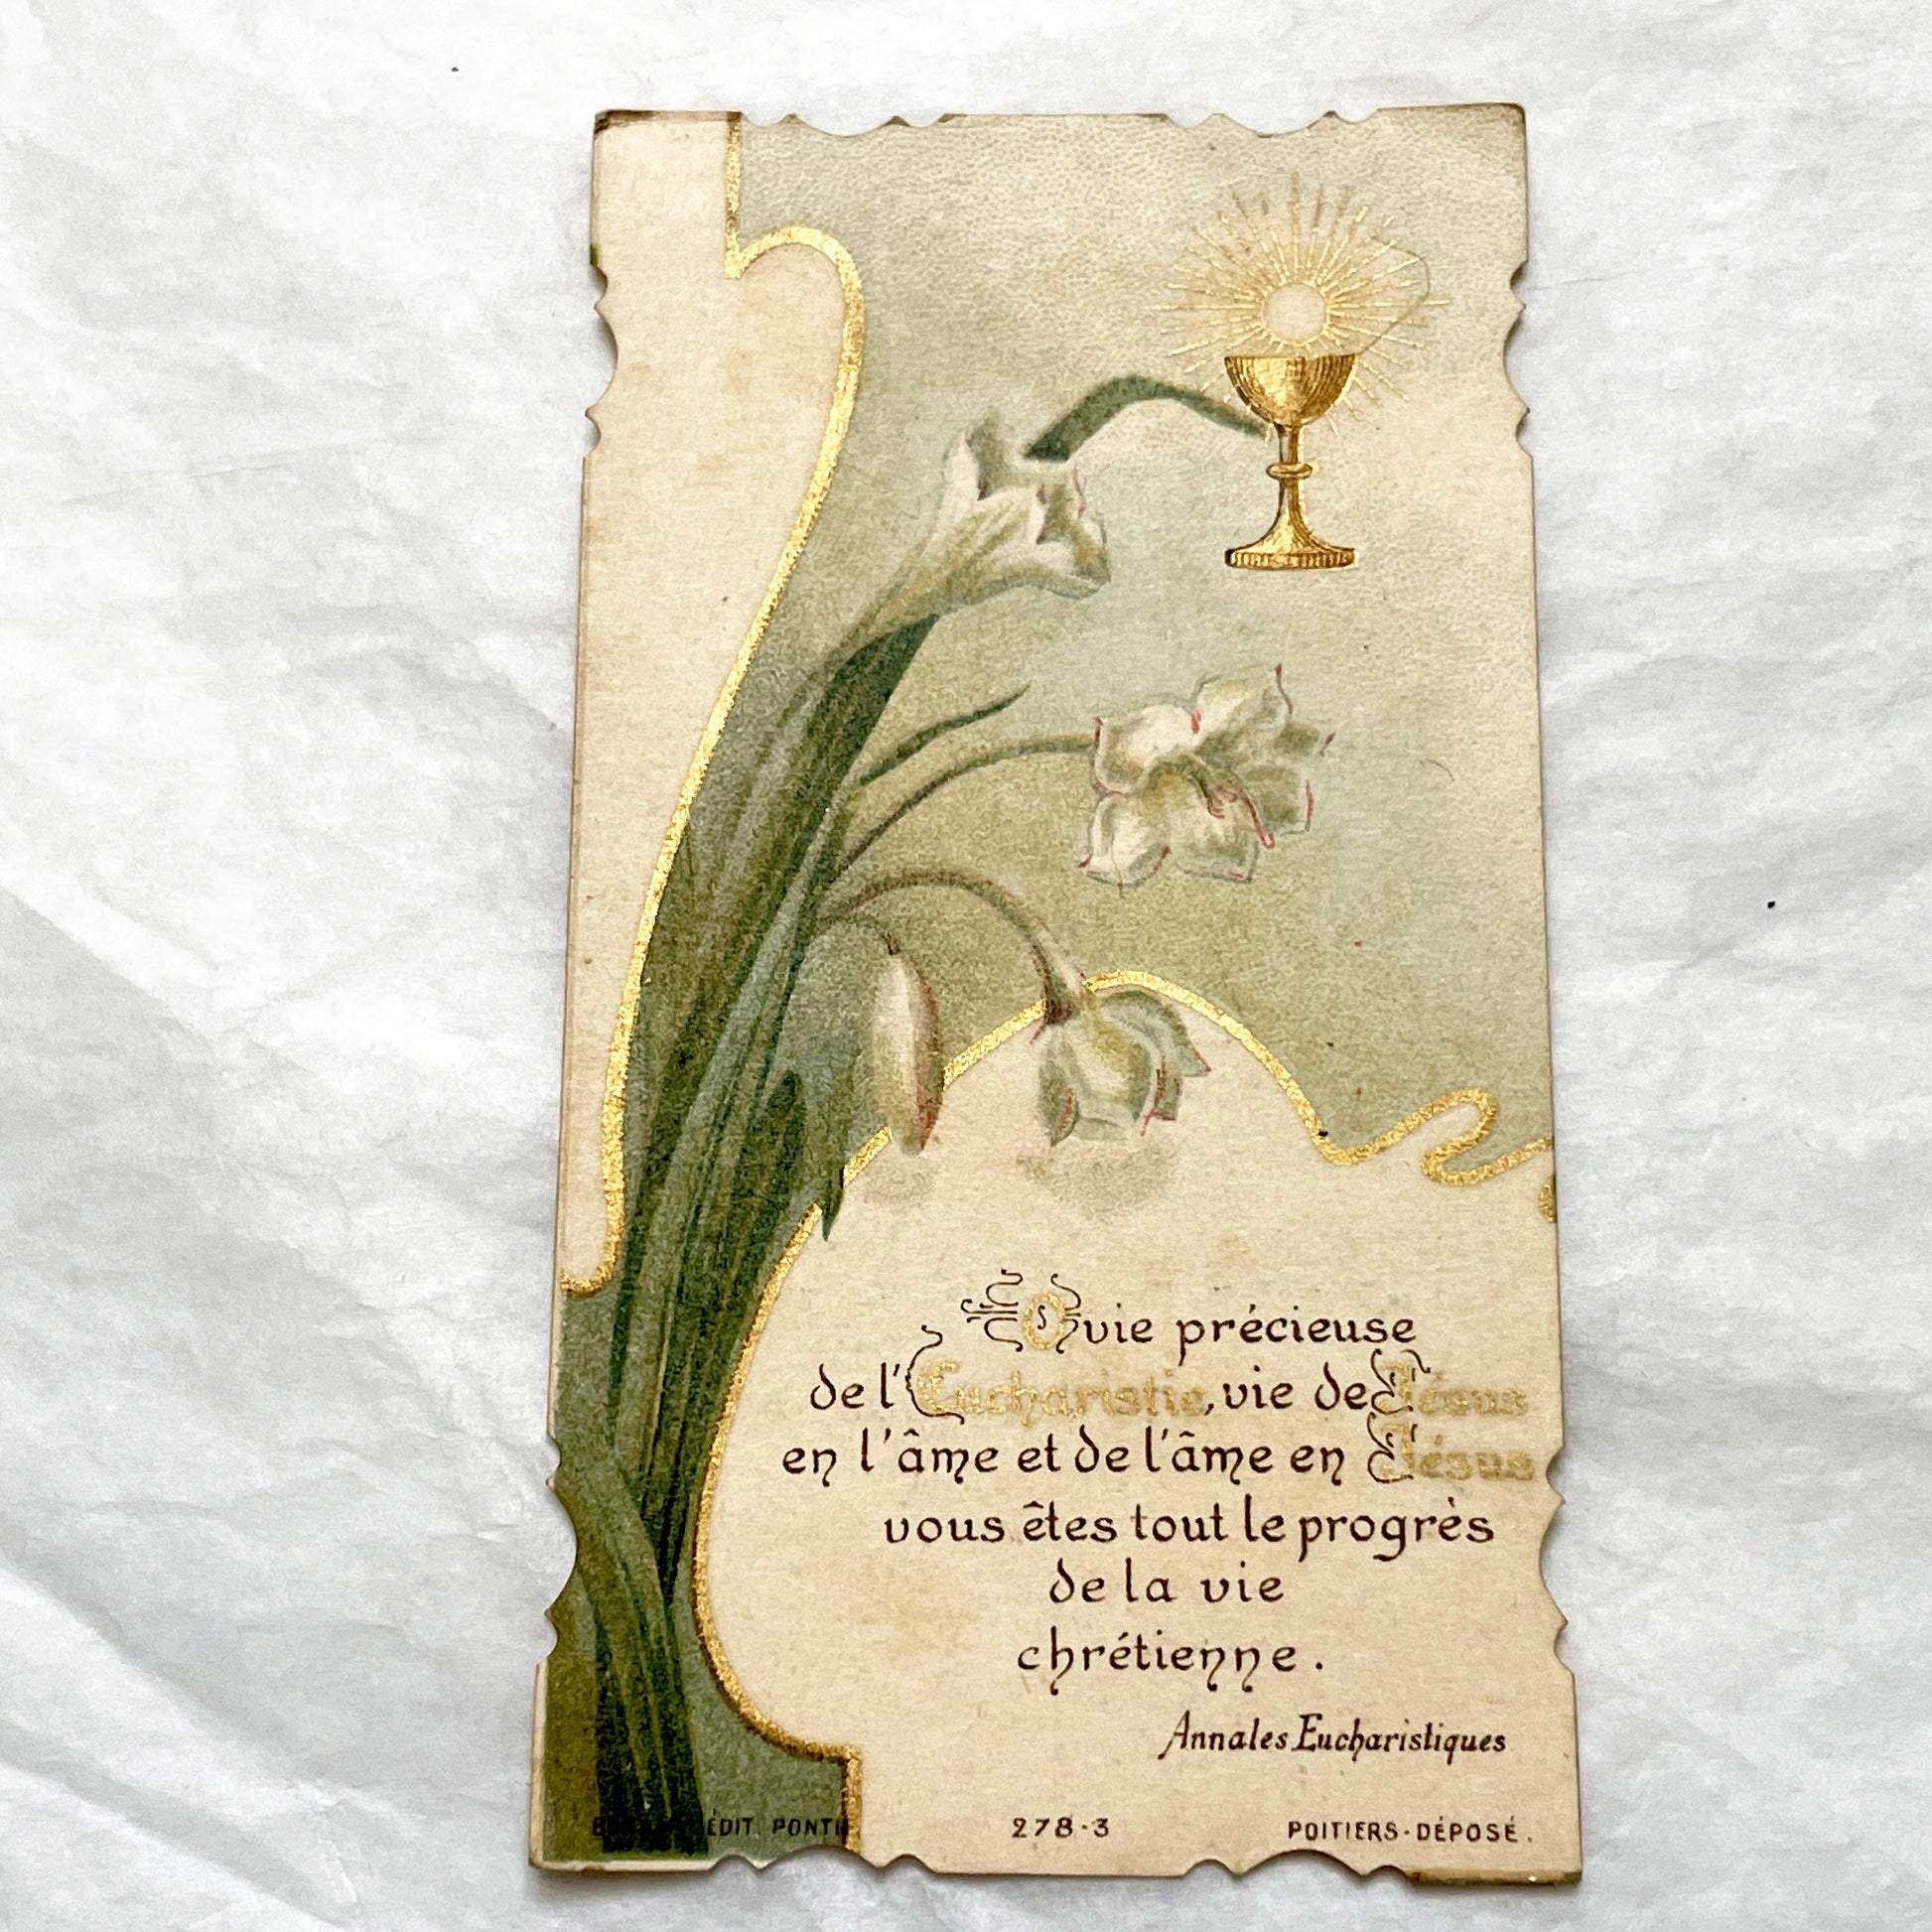 O vie précieuse
de l'Eucharistie, vie de Jésus
en l'âme et de l'âme en Jésus
vous êtes tout le progrès
de la vie
chrétienne.
Annales Eucharistiques
ÉDIT. 278-3 POITIERS-DÉPOSÉ.